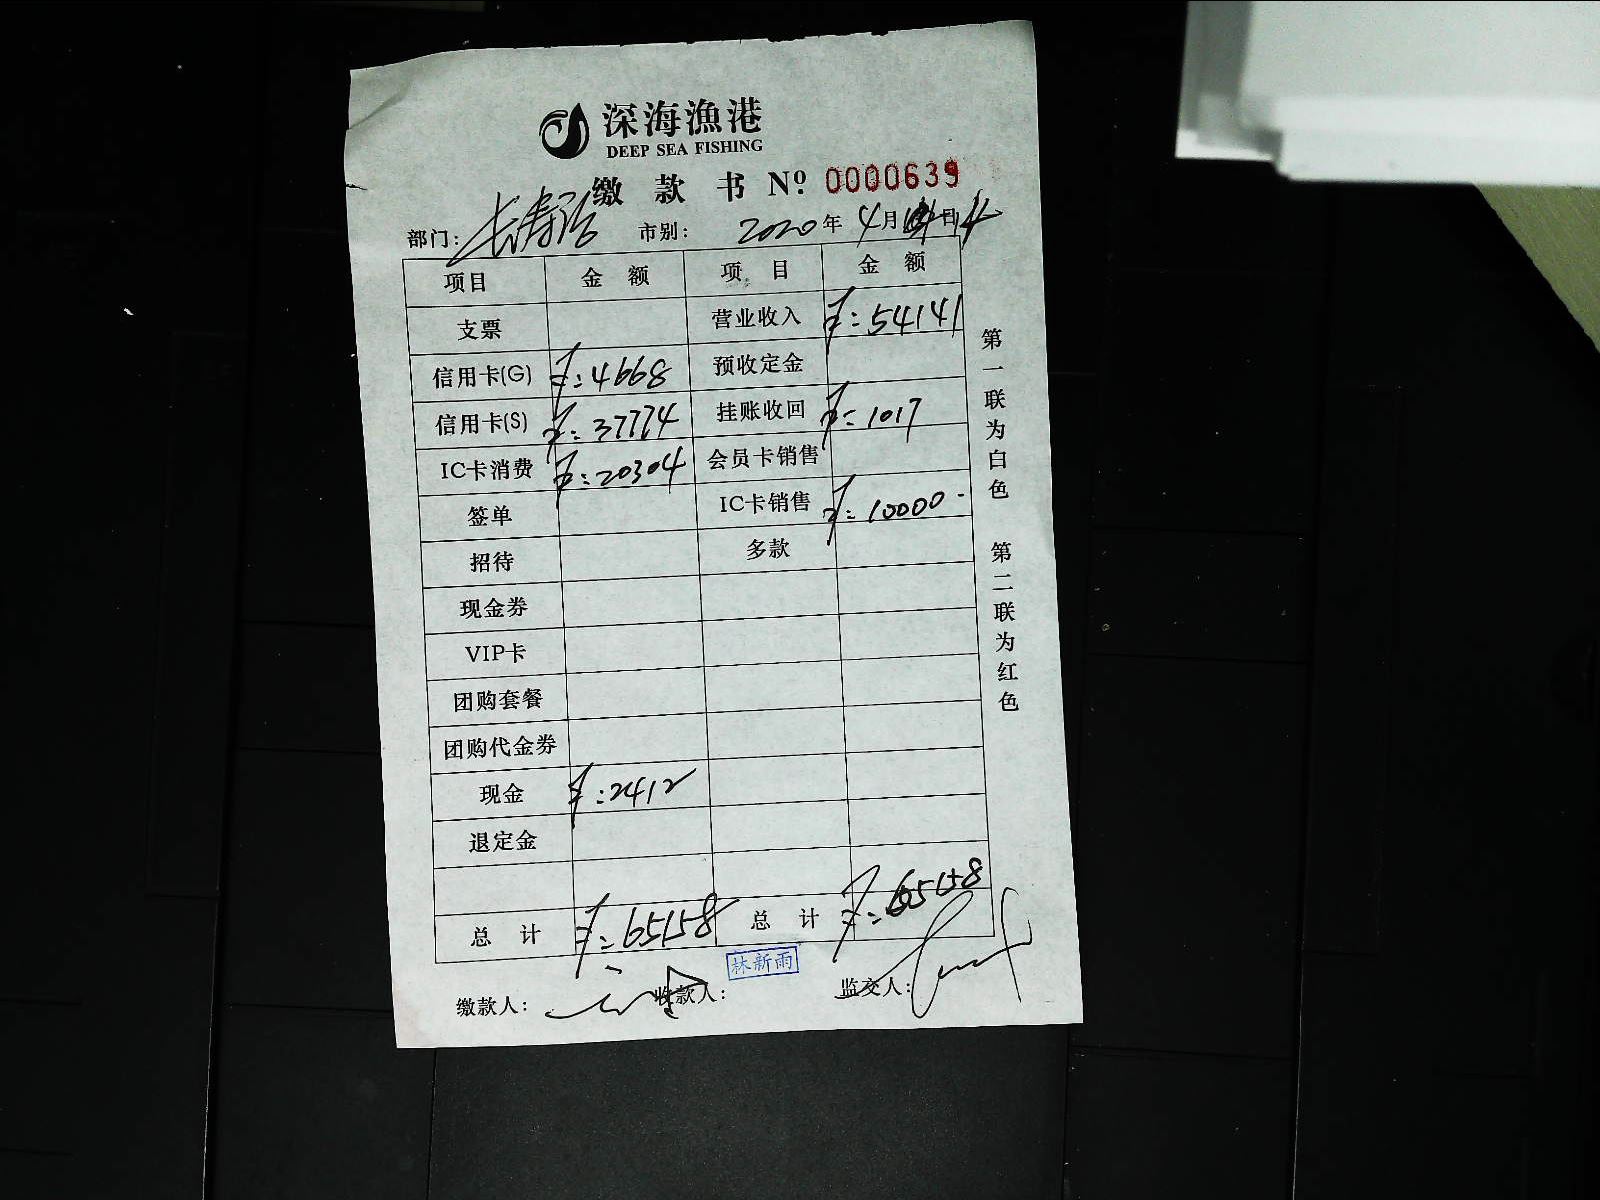 深海漁港
DEEP SEA FISHING
缴款书 Nº 0000639
部门：长寿路 市别： 2020年4月14日
项目 金额 项目 金额
支票 营业收入 ¥:54141
信用卡(G) ¥:4668 预收定金
信用卡(S) ¥:37774 挂账收回 ¥:1017
IC卡消费 ¥:20304 会员卡销售
签单 IC卡销售 ¥:10000-
招待 多款
现金券
VIP卡
团购套餐
团购代金券
现金 ¥:2412
退定金
总计 ¥:65158 总计 ¥:65158
缴款人： 收款人： 林新雨 监交人：
第一联为白色 第二联为红色